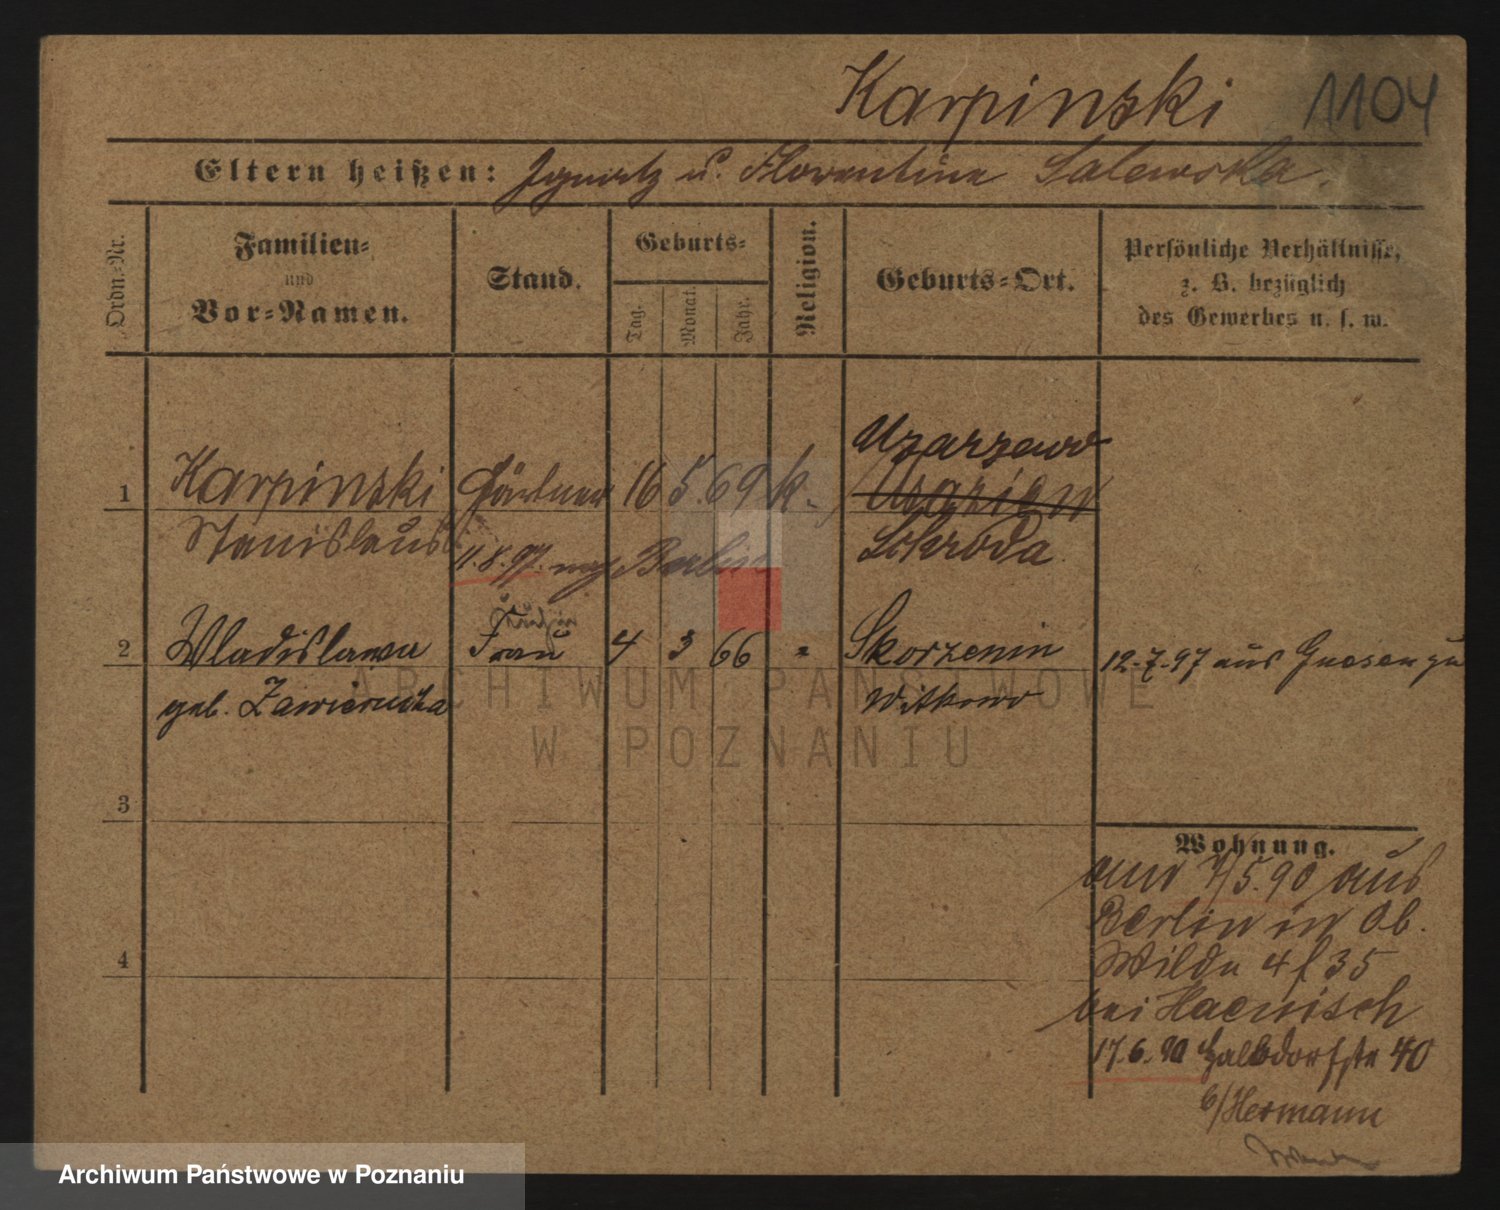 Karpinski 1104
Eltern heißen: Ignatz u. Florentine Salewska.
Ordn.-Nr.
Familien-
und
Vor-Namen.
Stand.
Geburts-
Tag.
Monat.
Jahr.
Religion.
Geburts-Ort.
Persönliche Verhältnisse,
z. B. bezüglich
des Gewerbes u. s. w.
Uzarzewo
1 Karpinski Gärtner 16 5. 69 k.
Stanislaus
Schroda
11.8.97. nach Berlin
2 Wladislawa Frau 4 3 66 " Skorzenin 12.7.97 aus Gnesen zu
geb. Zawiernicka Witkowo
3
Wohnung.
4
am 7/5.90 aus
Berlin in Ob.
Wilda 4 f 35
bei Haenisch
17.6.90 Halbdorfstr 40
b/Hermann
ARCHIWUM PAŃSTWOWE
W POZNANIU
Archiwum Państwowe w Poznaniu